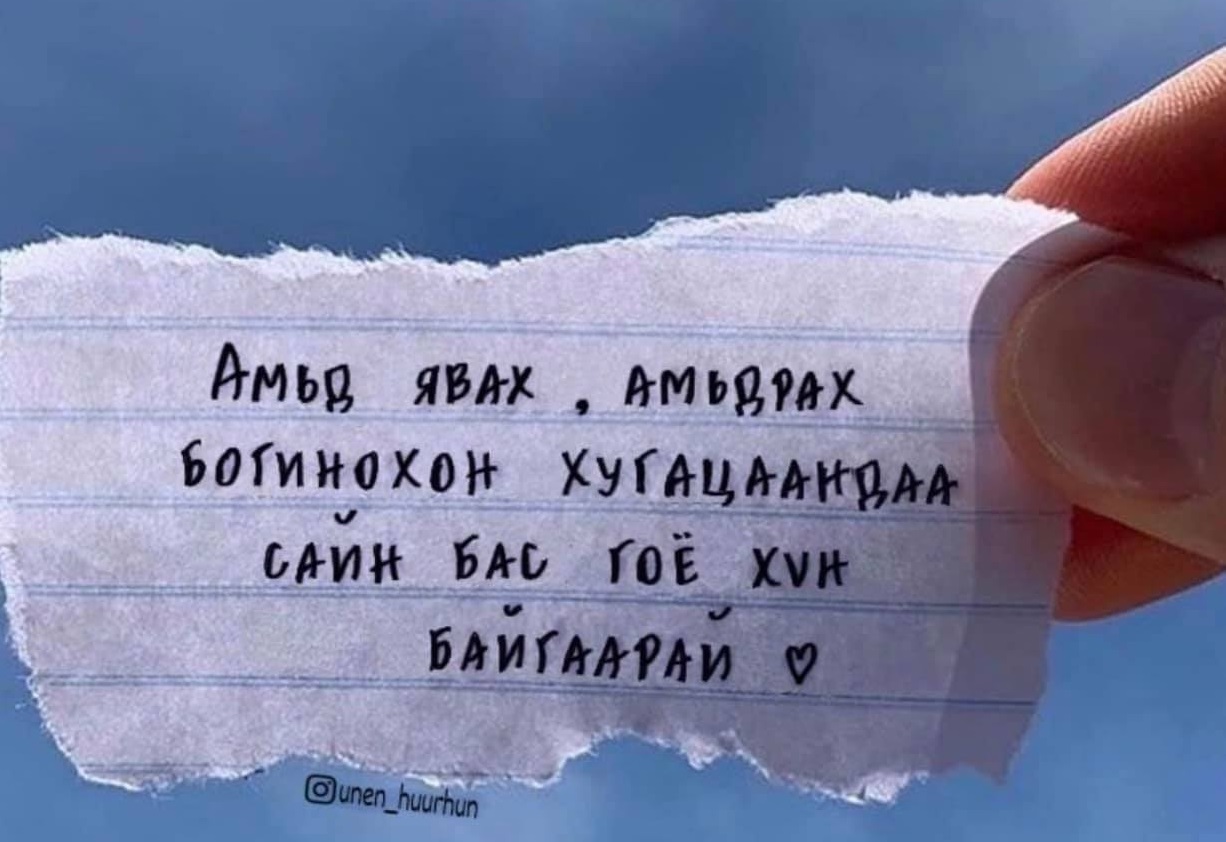 Амьд явах, амьдрах
богинохон хугацаандаа
сайн бас гоё хүн
байгаарай ♡
unen_huurhun